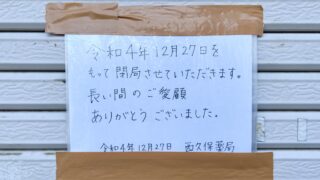 令和4年12月27日を
もって閉局させていただきます。
長い間のご愛顧
ありがとうございました。
令和4年12月27日 西久保薬局